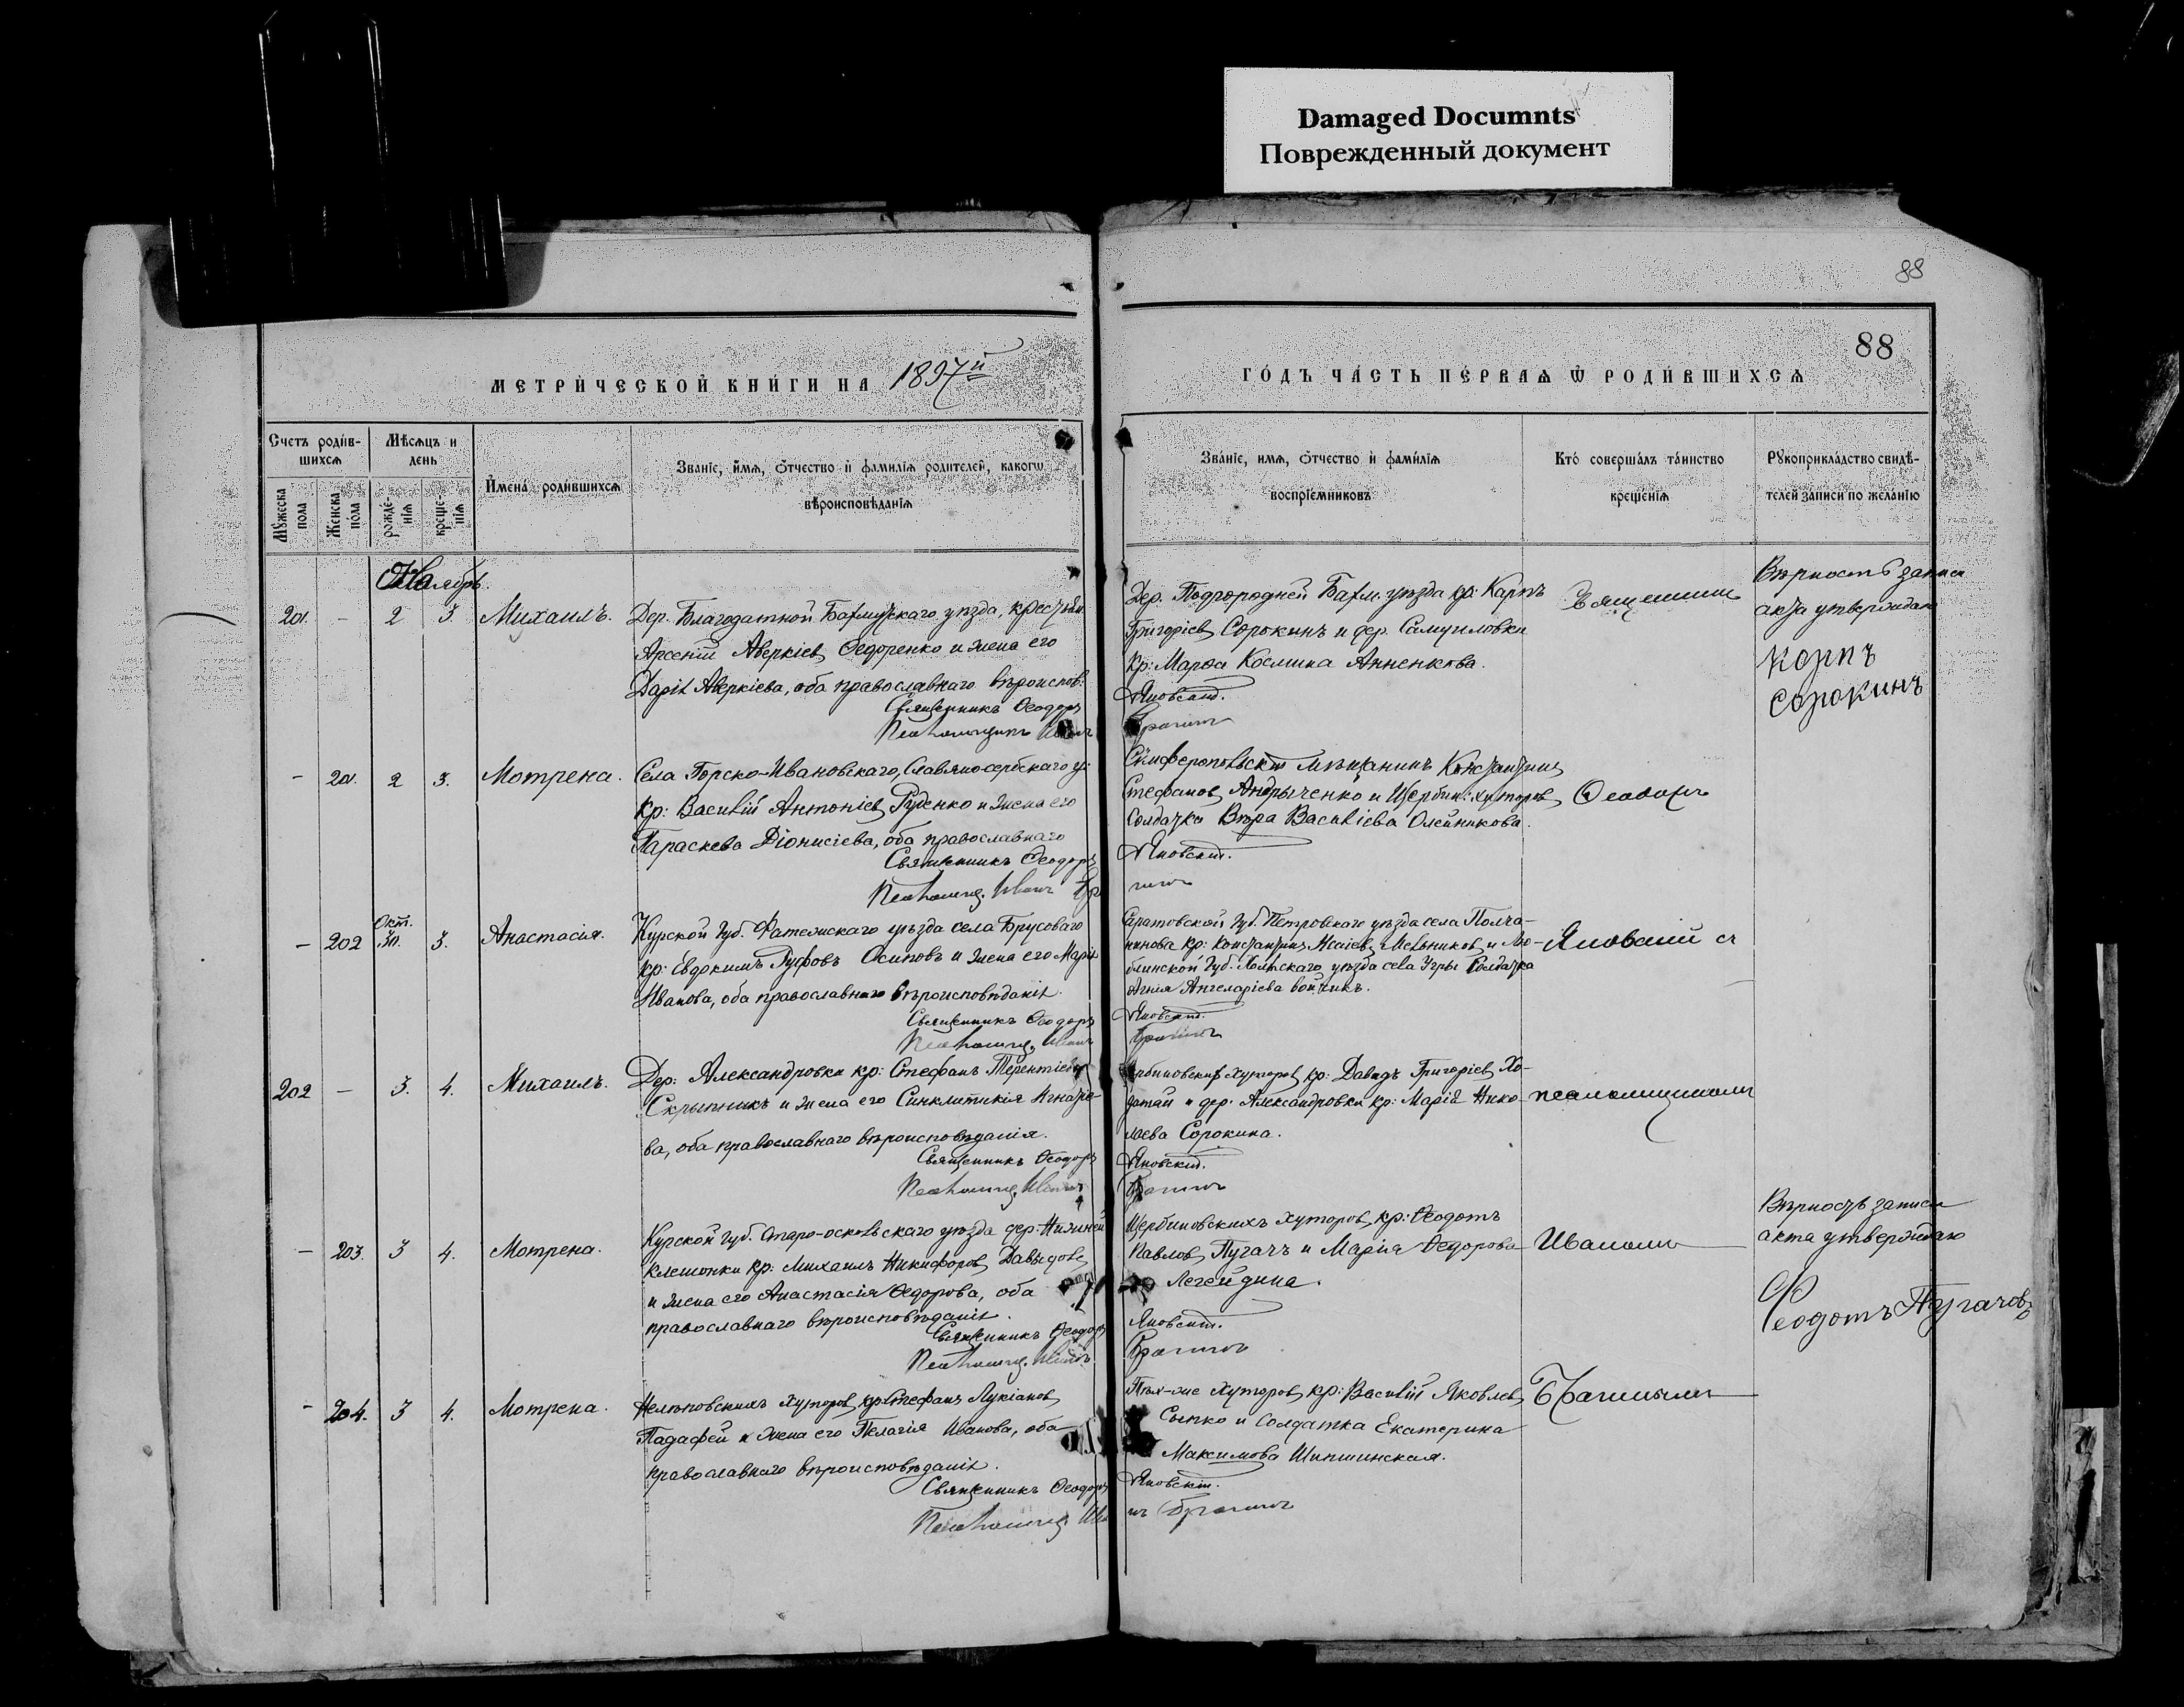 Damaged Documnts
Поврежденный документ
88
88
МЕТРИЧЕСКОЙ КНИГИ НА 1897й
ГОДЪ ЧАСТЬ ПЕРВАѦ Ѿ РОДИВШИХСѦ
Счетъ родив-
шихсѧ
Мꙋжеска пола
Женска пола
Мѣсѧцъ и
день
рожде-
нїѧ
креще-
нїѧ
Имена родившихсѧ
Званїе, имѧ, отчество и фамилїѧ родителей, какогѡ
вѣроисповѣданїѧ
Званїе, имѧ, отчество и фамилїѧ
воспрїемниковъ
Кто совершалъ таинство
крещенїѧ
Рꙋкоприкладство свидѣ-
телей записи по желанїю
Ноябрь.
201. – 2 3. Михаилъ.
Дер. Благодатной Бахмутскаго уѣзда, крестьян.
Арсеній Аверкіевъ Ѳедоренко и жена его
Дарія Аверкіева, оба православнаго вѣроиспов.
Священникъ Ѳеодоръ Яновскій.
Псаломщикъ Иванъ Брагинъ
Дер. Подгородней Бахм. уѣзда кр: Карпъ
Григоріевъ Сорокинъ и дер. Самуиловки
кр: Марѳа Космина Анненкова.
Священник
Вѣрность записи
акта утверждаю
Карпъ
Сорокинъ
– 201. 2 3. Мотрена.
Села Горско-Ивановскаго, Славяно-сербскаго у:
кр: Василій Антоніевъ Руденко и жена его
Параскева Діонисіева, оба православнаго
Священникъ Ѳеодоръ Яновскій.
Псаломщ. Иванъ Брагинъ
Симферопольскій мѣщанинъ Константинъ
Стефановъ Андрыченко и Щербин: хуторовъ
Солдатка Вѣра Василіева Олейникова.
Ѳеодоръ
– 202 Окт. 30. 3. Анастасія.
Курской губ. Фатежскаго уѣзда села Брусоваго
кр: Евдокимъ Руфовъ Осиповъ и жена его Марія
Иванова, оба православнаго вѣроисповѣданія.
Священникъ Ѳеодоръ Яновскій.
Псаломщ. Иванъ Брагинъ
Саратовской губ. Петровскаго уѣзда села Полча-
нинова кр: Константинъ Исаіевъ Мельниковъ и Лю-
блинской губ. Холмскаго уѣзда села Угры Солдатка
Агнія Ангеларіева Войчикъ.
Яновскій съ
202 – 3. 4. Михаилъ.
Дер: Александровки кр: Стефанъ Терентіевъ
Скрыпникъ и жена его Синклитикія Игнатіе-
ва, оба православнаго вѣроисповѣданія.
Священникъ Ѳеодоръ Яновскій.
Псаломщ. Иванъ Брагинъ
Щербиновскихъ хуторовъ кр: Давидъ Григоріевъ Хо-
датай и дер. Александровки кр: Марія Нико-
лаева Сорокина.
псаломщикомъ
– 203. 3 4. Мотрена.
Курской губ. Старо-оскольскаго уѣзда дер: Нижней
Клешонки кр: Михаилъ Никифоровъ Давыдовъ
и жена его Анастасія Ѳедорова, оба
православнаго вѣроисповѣданія.
Священникъ Ѳеодоръ Яновскій.
Псаломщ. Иванъ Брагинъ
Щербиновскихъ хуторовъ, кр: Ѳеодотъ
Павловъ Пугачъ и Марія Ѳедорова
Легейдина.
Иваномъ
Вѣрность записи
акта утверждаю
Феодотъ Пугачовъ
– 204. 3 4. Мотрена.
Нелѣповскихъ хуторовъ кр: Стефанъ Лукіановъ
Падафей и жена его Пелагія Иванова, оба
православнаго вѣроисповѣданія.
Священникъ Ѳеодоръ Яновскій.
Псаломщ. Иванъ Брагинъ
Тѣхъ-же хуторовъ, кр: Василій Яковлевъ
Сыпко и солдатка Екатерина
Максимова Шипшинская.
Брагинымъ